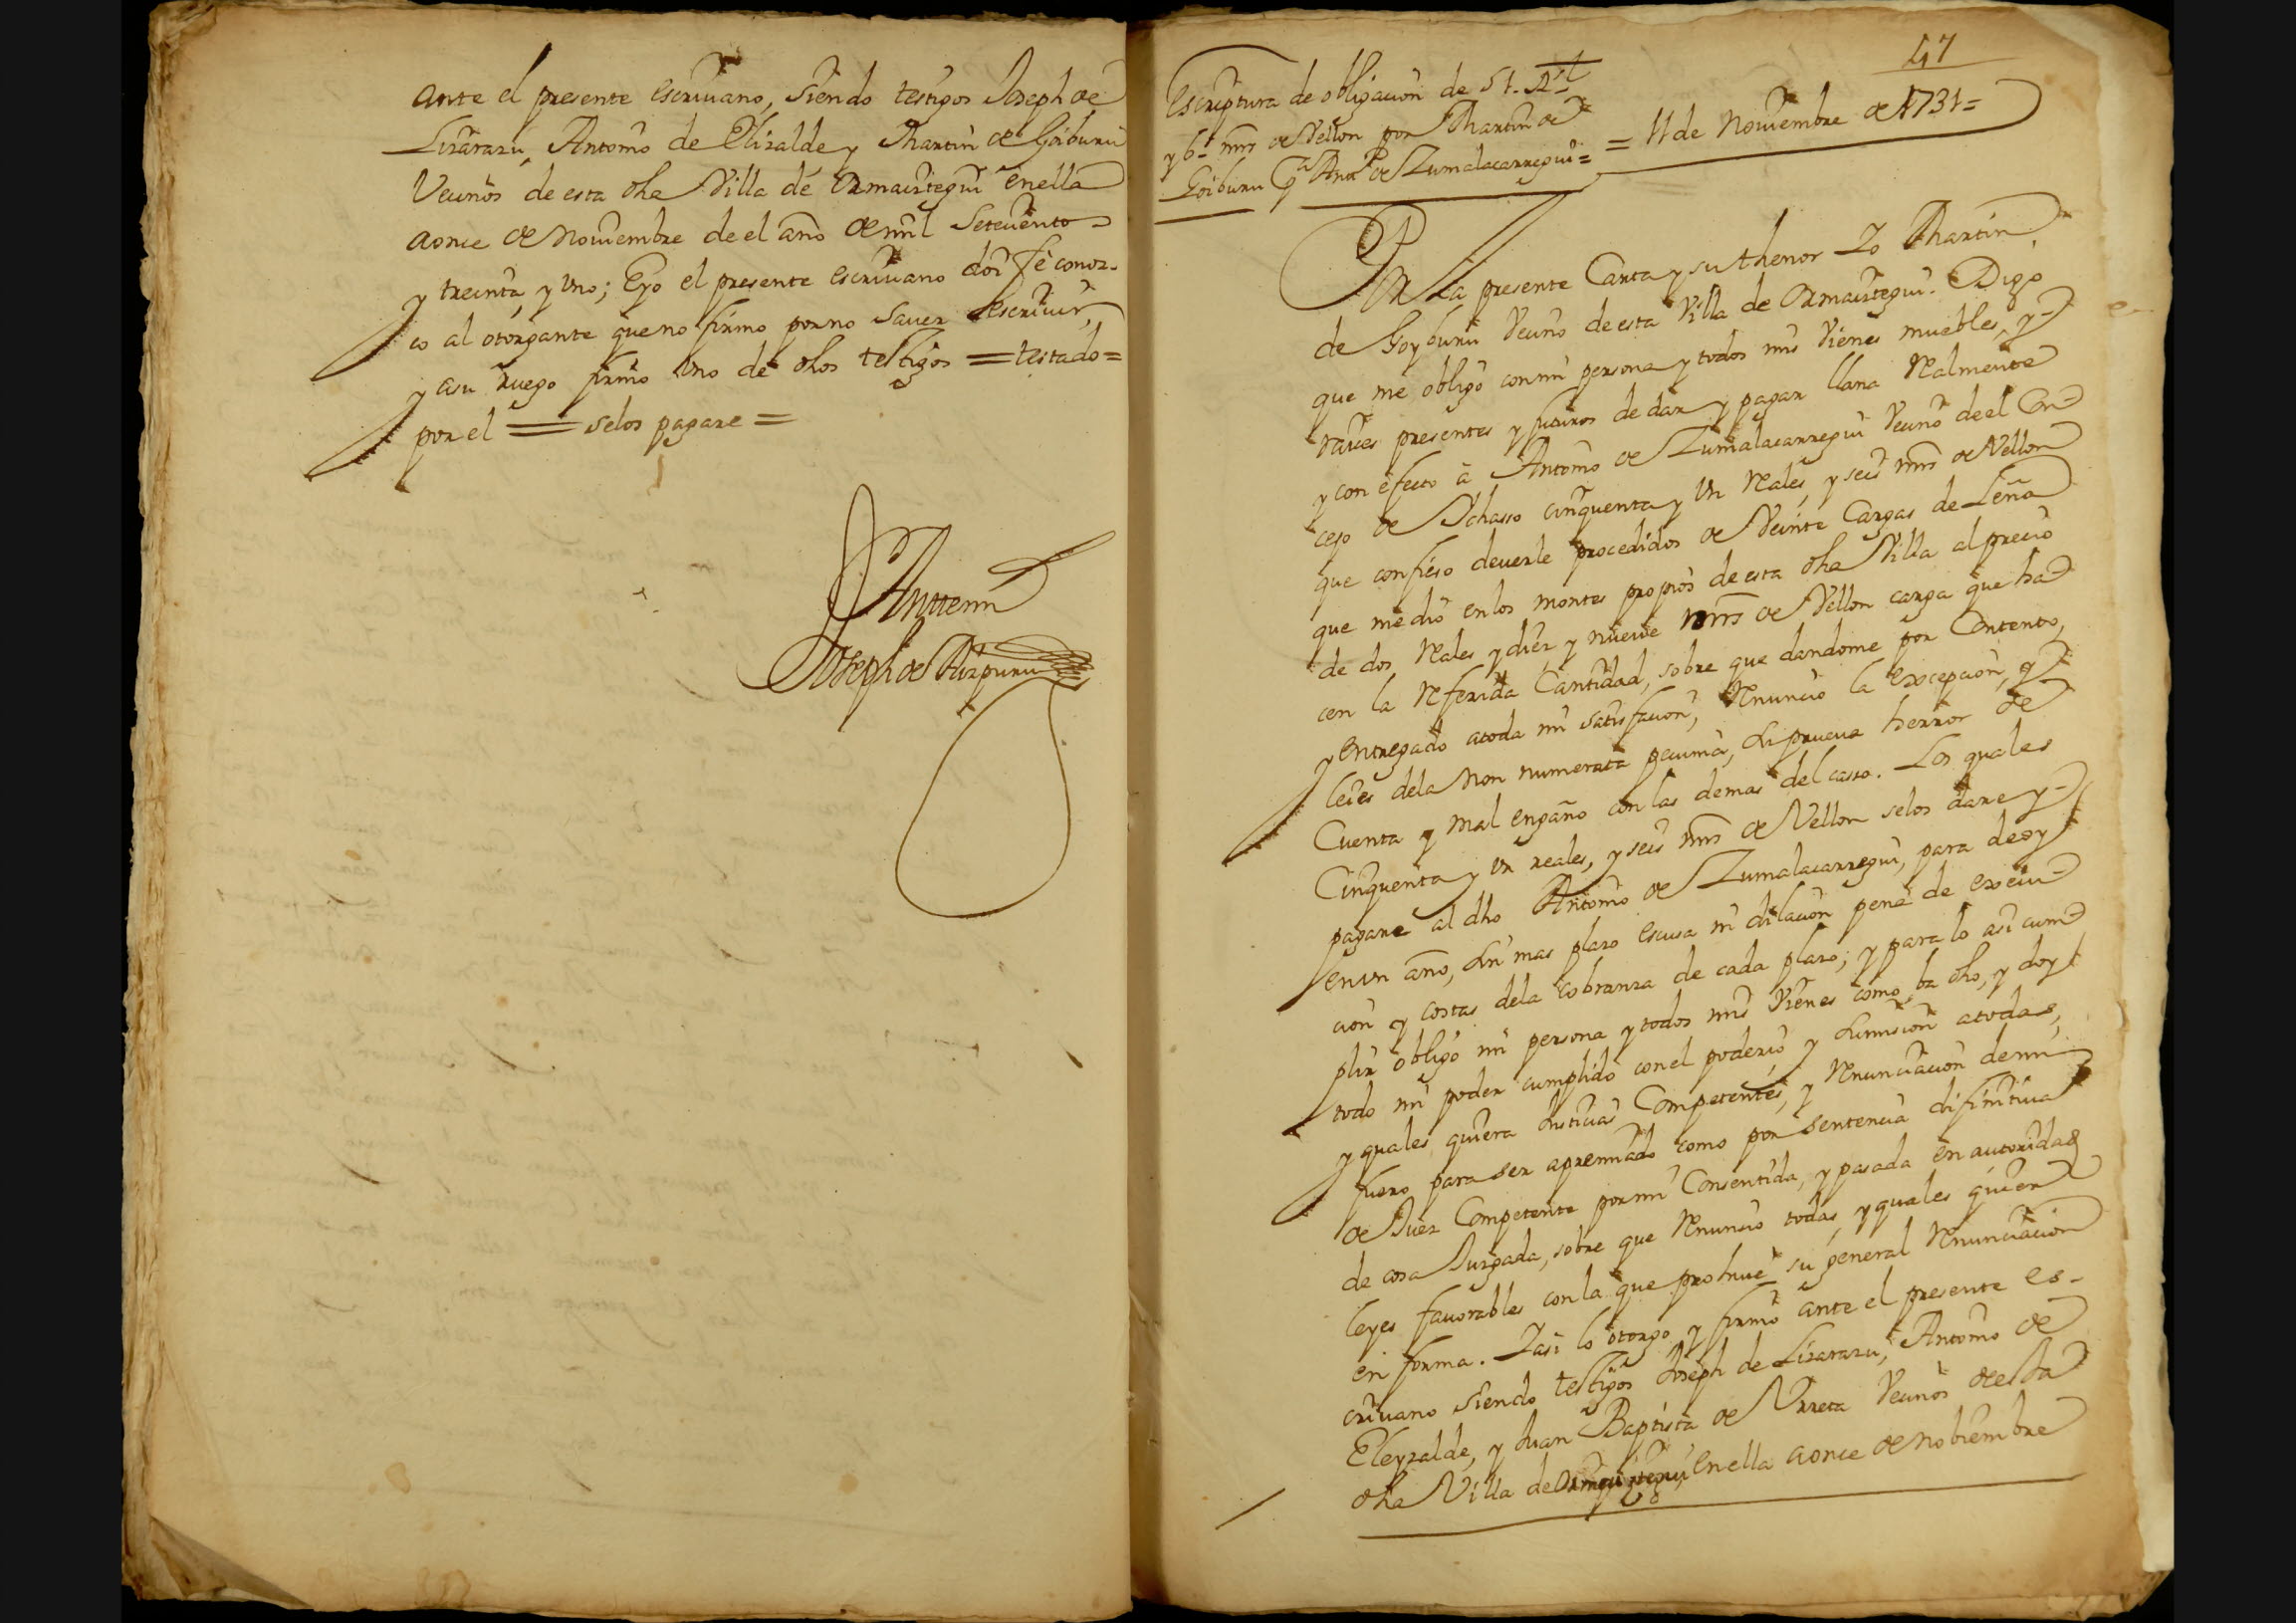 ante el presente escriuano, siendo testigos Joseph de
Lizarazu, Antonio de Elizalde y Martin de Goiburu
Vecinos de esta dha Villa de Ormaiztegui en ella
a once de Nouiembre de el año de mil Setecientos
y treinta y uno; E yo el presente escriuano doi fe conoz-
co al otorgante que no firmo por no sauer escriuir,
y a su ruego firmo uno de dhos testigos = testado =
por el = se los pagare =
Ante mi
Joseph de Aizpuru
47
Escriptura de obligacion de 51. Rs
y 6 mrs de Vellon por Martin de
Goiburu Cª Antº de Zumalacarregui =
= 11 de Nouiembre de 1731 =
En La presente Carta y su thenor Yo Martin
de Goyburu Vecino de esta Villa de Ormaiztegui. Digo
que me obligo con mi persona y todos mis Vienes muebles, y
raices presentes y futuros de dar y pagar llana Realmente
y con efecto à Antonio de Zumalacarregui Vecino de el Con
cejo de cinquenta y un Reales, y seis mrs de Vellon
que confieso deuerle procedidos de Veinte Cargas de Leña
que me dio en los montes propios de esta dha Villa al precio
de dos Reales y diez y nueue mrs de Vellon carga que ha
cen la Referida Cantidad, sobre que dandome por Contento,
y entregado a toda mi satisfacion, Renuncio la excepcion, y
leies de la Non numerata pecunia, su prueua herror de
Cuenta y mal engaño con las demas del casso. Los quales
Cinquenta y un reales, y seis mrs de Vellon se los dare y
pagare al dho Antonio de Zumalacarregui, para de oy
en un año, sin mas plazo escusa ni dilacion pena de execu
cion y costas de la cobranza de cada plazo; y para lo asi cum
plir obligo mi persona y todos mis Vienes como ba dho, y doy
todo mi poder cumplido con el poderio y sumision a todas,
y quales quiera Justicias Competentes, y Renunciacion de mi
fuero para ser apremiado como por sentencia difinitiua
de Juez Competente por mi Consentida, y pasada en autoridad
de cosa Juzgada, sobre que Renuncio todas, y quales quier
leyes fauorables con la que prohiue su general Renunciacion
en forma. Y asi lo otorgo y firmo ante el presente es-
criuano siendo testigos Joseph de Lizarazu, Antonio de
Eleyzalde, y Juan Baptista de Urreta Vecinos de esta
dha Villa de Ormaiztegui, en ella a once de nobiembre